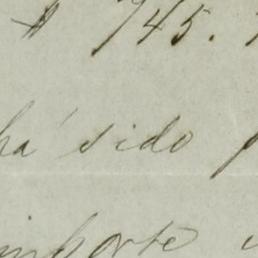 $ 745.
ha sido
importe